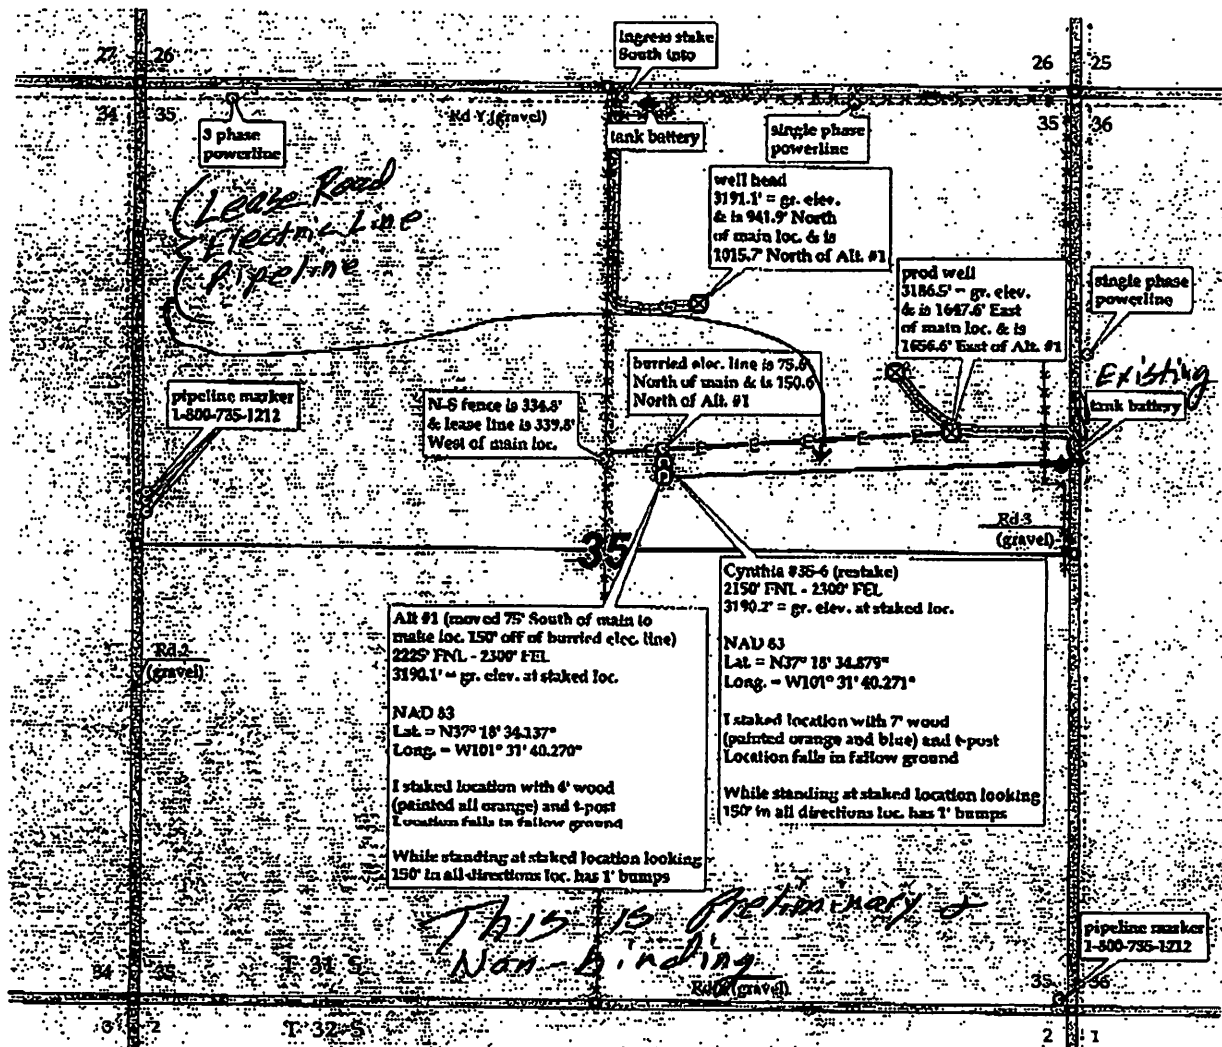 Ingress stake
South into
27 26
26 25
34 35
35 36
3 phase
powerline
Rd Y (gravel)
tank battery
single phase
powerline
Lease Road
Electric Line
Pipeline
well head
3191.1' = gr. elev.
& is 941.9' North
of main loc. & is
1015.7' North of Alt. #1
prod well
3186.5' = gr. elev.
& is 1647.6' East
of main loc. & is
1656.6' East of Alt. #1
single phase
powerline
Existing
tank battery
pipeline marker
1-800-735-1212
N-S fence is 334.8'
& lease line is 339.8'
West of main loc.
burried elec. line is 75.6'
North of main & is 150.6'
North of Alt. #1
E E E E E
35
Rd 3
(gravel)
Alt #1 (moved 75' South of main to
make loc. 150' off of burried elec. line)
2225' FNL - 2300' FEL
3190.1' = gr. elev. at staked loc.
NAD 83
Lat. = N37° 18' 34.137"
Long. = W101° 31' 40.270"
I staked location with 6' wood
(painted all orange) and t-post
Location falls in fallow ground
While standing at staked location looking
150' in all directions loc. has 1' bumps
Cynthia #35-6 (restake)
2150' FNL - 2300' FEL
3190.2' = gr. elev. at staked loc.
NAD 83
Lat. = N37° 18' 34.879"
Long. = W101° 31' 40.271"
I staked location with 7' wood
(painted orange and blue) and t-post
Location falls in fallow ground
While standing at staked location looking
150' in all directions loc. has 1' bumps
Rd 2
(gravel)
This is Preliminary &
Non-binding
pipeline marker
1-800-735-1212
34 35
T 31 S
(gravel)
35 36
3 2
T 32 S
2 1